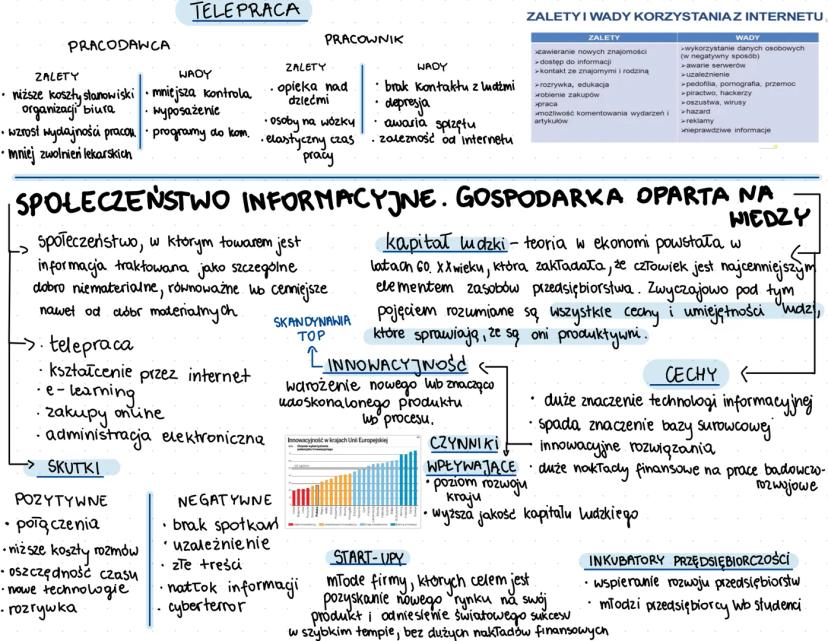 TELEPRACA
PRACODAWCA
ZALETY
• niższe koszty stanowiski
organizacji biura
• wzrost wydajności pracow.
• mniej zwolnień lekarskich
WADY
• mniejsza kontrola
• wyposażenie
• programy do kom.
PRACOWNIK
ZALETY
• opieka nad
dziećmi
• osoby na wózku
• elastyczny czas
pracy
WADY
• brak kontaktu z ludźmi
• depresja
• awaria sprzętu
• zależność od internetu
ZALETY I WADY KORZYSTANIA Z INTERNETU
ZALETY
➢zawieranie nowych znajomości
➢dostęp do informacji
➢kontakt ze znajomymi i rodziną
➢rozrywka, edukacja
➢robienie zakupów
➢praca
➢możliwość komentowania wydarzeń i
artykułów
WADY
➢wykorzystanie danych osobowych
(w negatywny sposób)
➢awarie serwerów
➢uzależnienie
➢pedofilia, pornografia, przemoc
➢piractwo, hackerzy
➢oszustwa, wirusy
➢hazard
➢reklamy
➢nieprawdziwe informacje
SPOŁECZEŃSTWO INFORMACYJNE. GOSPODARKA OPARTA NA
WIEDZY
społeczeństwo, w którym towarem jest
informacja traktowana jako szczególne
dobro niematerialne, równoważne lub cenniejsze
nawet od dóbr materialnych
• telepraca
• kształcenie przez internet
• e-learning
• zakupy online
• administracja elektroniczna
SKUTKI
POZYTYWNE
• połączenia
• niższe koszty rozmów
• oszczędność czasu
• nowe technologie
• rozrywka
NEGATYWNE
• brak spotkań
• uzależnienie
• złe treści
• natłok informacji
• cyberterror
kapitał ludzki – teoria w ekonomi powstała w
latach 60. XX wieku, która zakładała, że człowiek jest najcenniejszym
elementem zasobów przedsiębiorstwa. Zwyczajowo pod tym
pojęciem rozumiane są wszystkie cechy i umiejętności ludzi,
które sprawiają, że są oni produktywni.
SKANDYNAWIA
TOP
INNOWACYJNOŚĆ
wdrożenie nowego lub znacząco
udoskonalonego produktu
lub procesu.
Innowacyjność w krajach Unii Europejskiej
CZYNNIKI
WPŁYWAJĄCE
• poziom rozwoju
kraju
• wyższa jakość kapitału ludzkiego
CECHY
• duże znaczenie technologi informacyjnej
• spada znaczenie bazy surowcowej
• innowacyjne rozwiązania
• duże nakłady finansowe na prace badawczo-
rozwojowe
START-UPY
młode firmy, których celem jest
pozyskanie nowego rynku na swój
produkt i odniesienie światowego sukcesu
w szybkim tempie, bez dużych nakładów finansowych
INKUBATORY PRZEDSIĘBIORCZOŚCI
• wspieranie rozwoju przedsiębiorstw
• młodzi przedsiębiorcy lub studenci